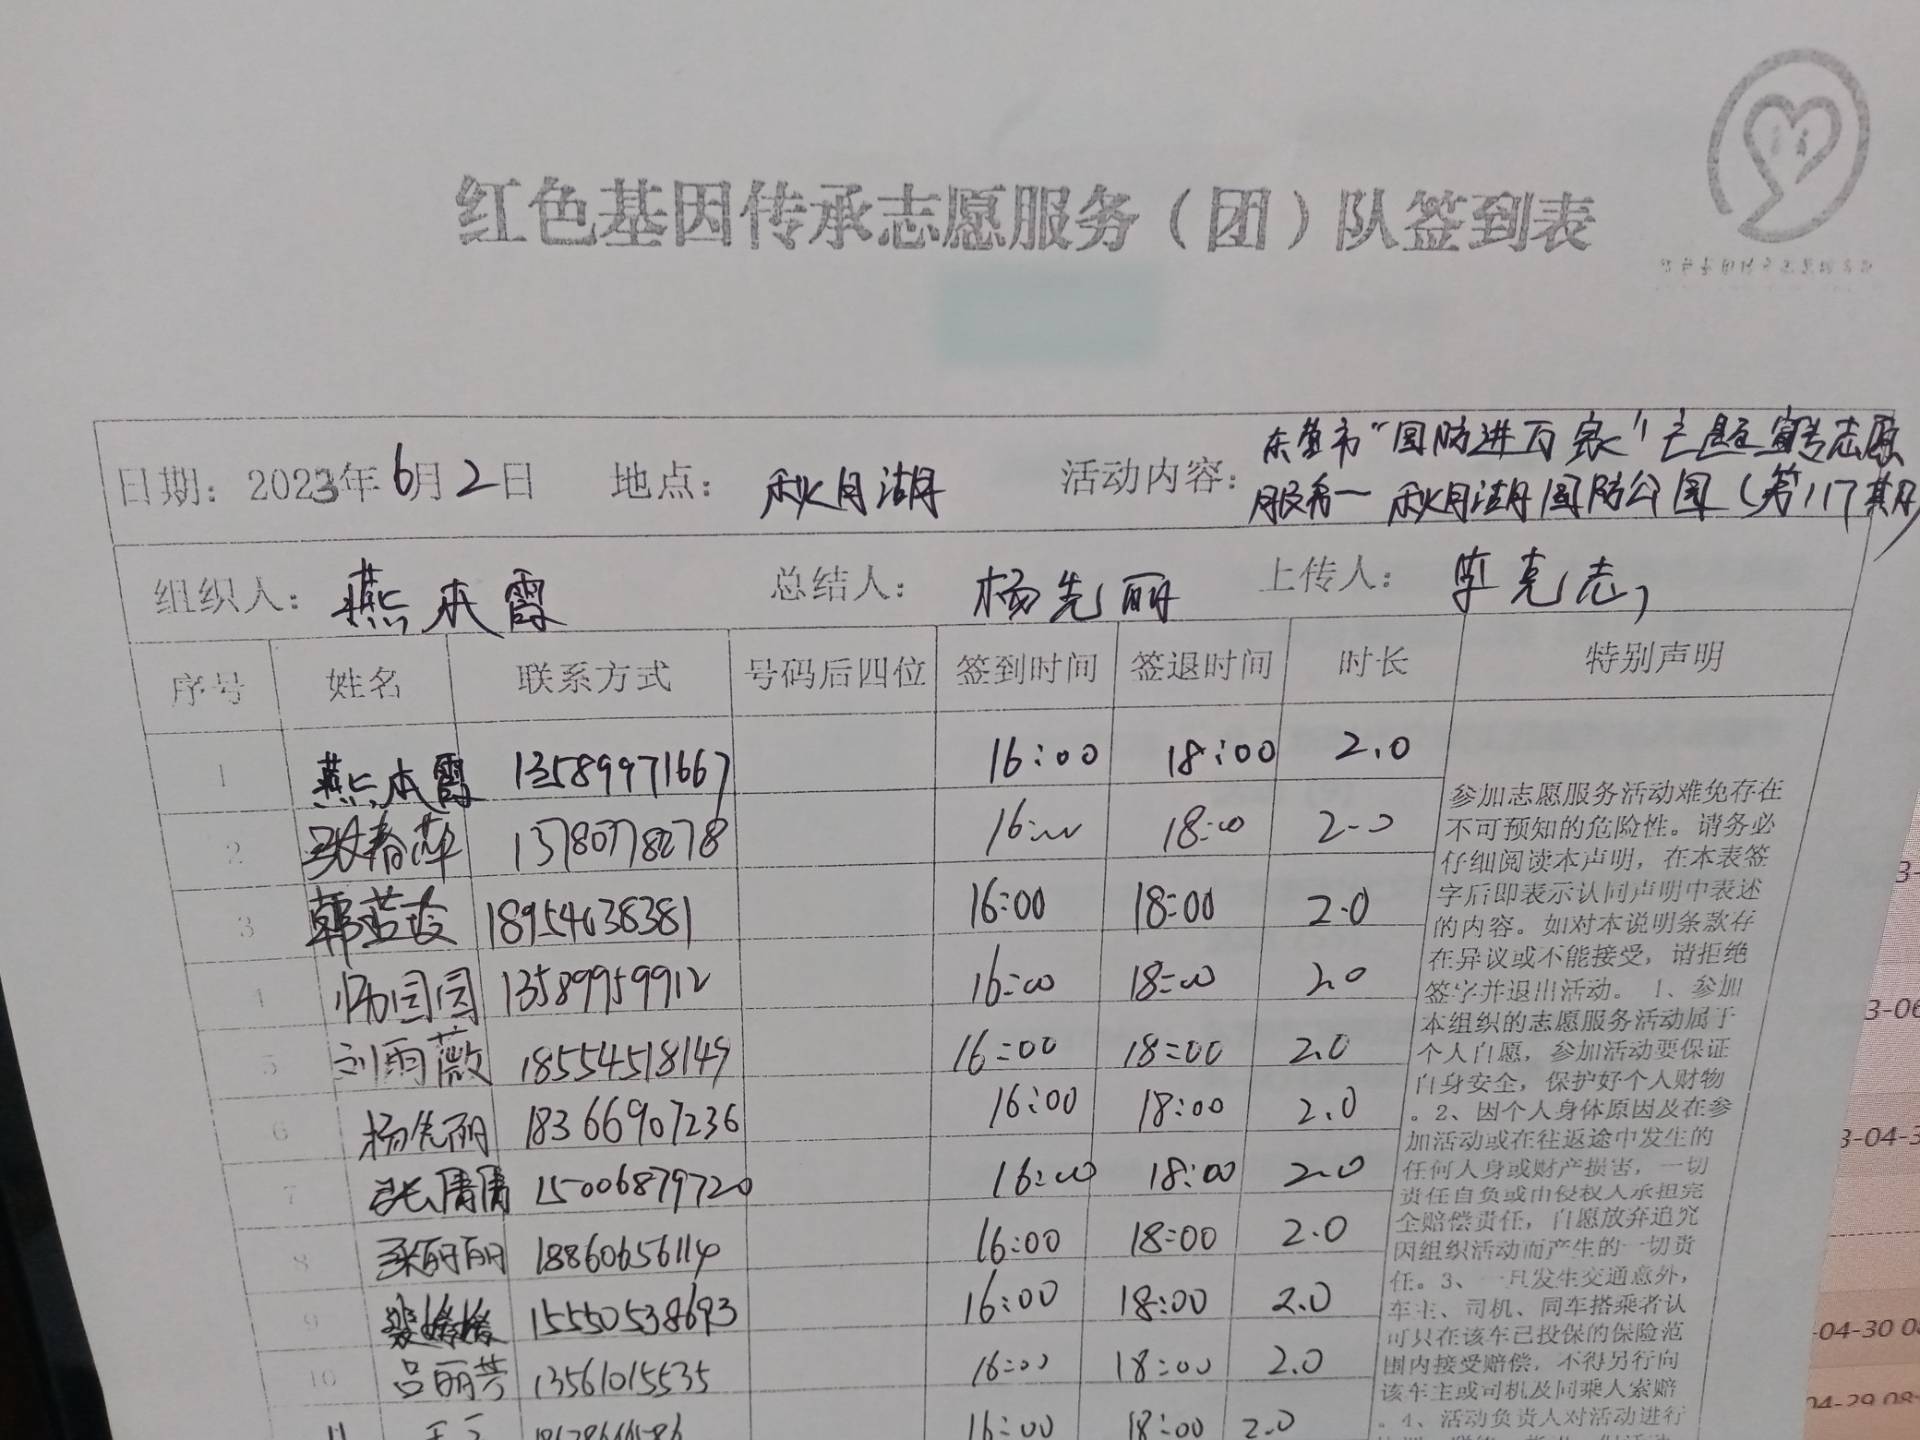 红色基因传承志愿服务（团）队签到表
日期：2023年6月2日 地点：秋月湖 活动内容：东营市“国防进万家”主题宣传志愿
服务一秋月湖国防公园（第117期）
组织人：燕本霞 总结人：杨先丽 上传人：李克志
序号 姓名 联系方式 号码后四位 签到时间 签退时间 时长 特别声明
1 燕本霞 13589971667 16:00 18:00 2.0
2 张春萍 13780778278 16:00 18:00 2.0
3 韩芸芸 18954638381 16:00 18:00 2.0
4 园园 13589959912 16:00 18:00 2.0
5 刘雨薇 18554518149 16:00 18:00 2.0
6 杨先丽 18366907236 16:00 18:00 2.0
7 张倩倩 15006879720 16:00 18:00 2.0
8 丽丽 18860656114 16:00 18:00 2.0
9 15550538693 16:00 18:00 2.0
10 吕丽芳 13561015535 16:00 18:00 2.0
11 16:00 18:00 2.0
参加志愿服务活动难免存在
不可预知的危险性。请务必
仔细阅读本声明，在本表签
字后即表示认同声明中表述
的内容。如对本说明条款存
在异议或不能接受，请拒绝
签字并退出活动。1、参加
本组织的志愿服务活动属于
个人自愿，参加活动要保证
自身安全，保护好个人财物
。2、因个人身体原因及在参
加活动或在往返途中发生的
任何人身或财产损害，一切
责任自负或由侵权人承担完
全赔偿责任，自愿放弃追究
因组织活动而产生的一切责
任。3、一旦发生交通意外，
车主、司机、同车搭乘者认
可只在该车已投保的保险范
围内接受赔偿，不得另行向
该车主或司机及同乘人索赔
。4、活动负责人对活动进行
3-06
3-04-3
-04-30 08
04-29 08: